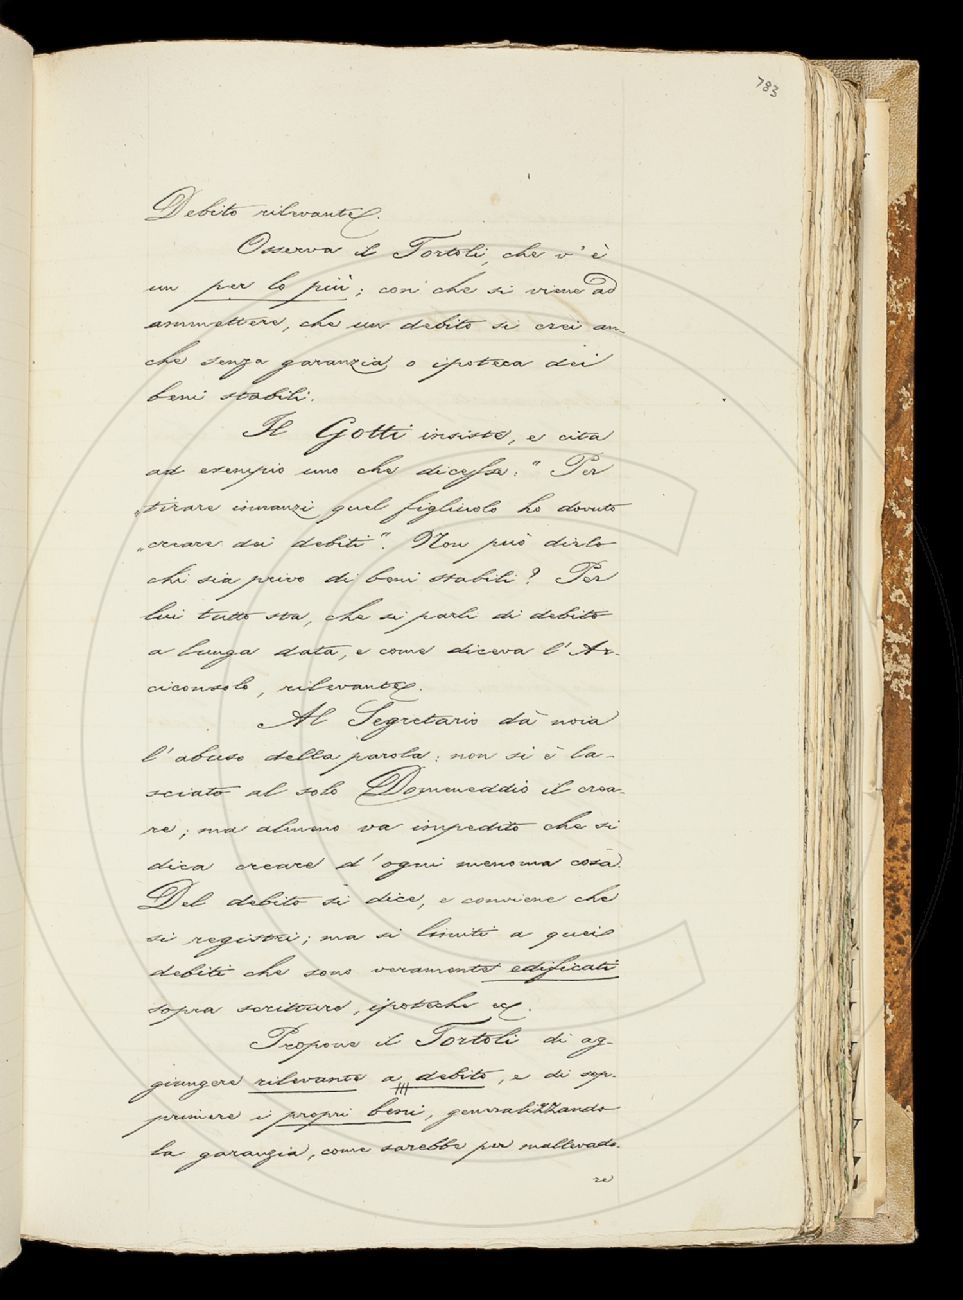 783
Debito rilevante.
Osserva il Tortoli, che v'è
un per lo più; con che si viene ad
ammettere, che un debito si crei an-
che senza garanzia o ipoteca dei
beni stabili.
Il Gotti insiste, e cita
ad esempio uno che dicesse: "Per
"tirare innanzi quel figliuolo ho dovuto
"creare dei debiti". Non può dirlo
chi sia privo di beni stabili? Per
lui tutto sta, che si parli di debito
a lunga data, e come diceva l'Ar-
ciconsolo, rilevante.
Al Segretario dà noia
l'abuso della parola: non si è la-
sciato al solo Domeneddio il crea-
re; ma almeno va impedito che si
dica creare d'ogni menoma cosa.
Del debito si dice, e conviene che
si registri; ma si limiti a quei
debiti che sono veramente edificati
sopra scritture, ipoteche ec.
Propone il Tortoli di ag-
giungere rilevante a debito, e di sop-
primere i propri beni, generalizzando
la garanzia, come sarebbe per mallevado-
re